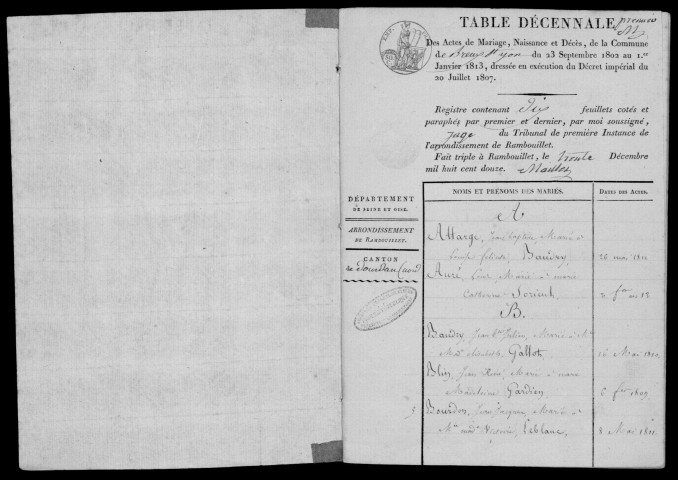 TABLE DÉCENNALE
Des Actes de Mariage, Naissance et Décès, de la Commune
de du 23 Septembre 1802 au 1.er
Janvier 1813, dressée en exécution du Décret impérial du
20 Juillet 1807.
Registre contenant Dix feuillets cotés et
paraphés par premier et dernier, par moi soussigné,
Juge du Tribunal de première Instance de
l'arrondissement de Rambouillet.
Fait triple à Rambouillet, le trente Décembre
mil huit cent douze.
DÉPARTEMENT
DE SEINE ET OISE.
ARRONDISSEMENT
DE RAMBOUILLET.
CANTON
de Dourdan (nord)
NOMS ET PRÉNOMS DES MARIÉS.
DATES DES ACTES.
A
Allarge, Jean Baptiste, Marié à
Baudry 26 mai 1811
Auré, Marié à marie
Catherine
B.
Baudry, Jean Marié à
Gallot 16 Mai 1810
Blin, Jean Marié à marie
Madeleine Gardien 6 fer 1809
Bourdon, Jean Jacques Marié à
Leblanc, 8 Mai 1811